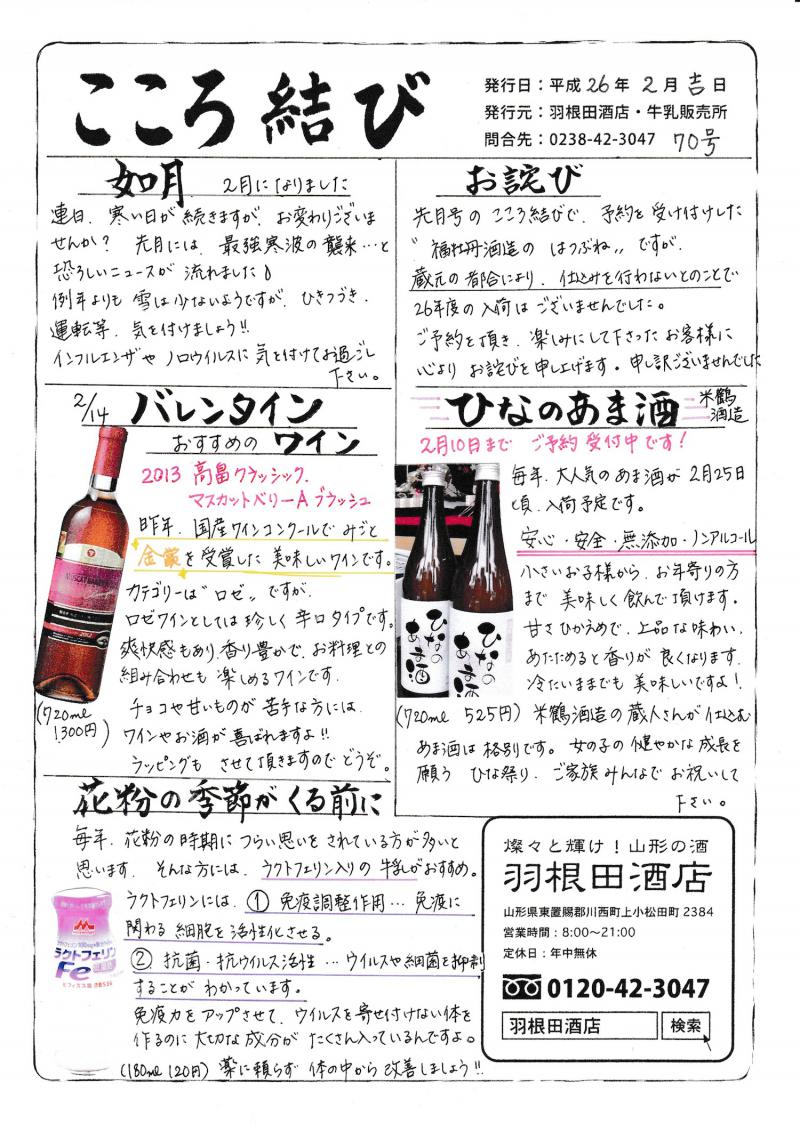 こころ結び
発行日:平成26年2月吉日
発行元:羽根田酒店・牛乳販売所
問合先:0238-42-3047 70号
如月 2月になりました
連日、寒い日が続きますが、お変わりございま
せんか? 先月には、最強寒波の襲来…と
恐ろしいニュースが流れました♪
例年よりも雪は少ないようですが、ひきつづき、
運転等、気を付けましょう!!
インフルエンザやノロウイルスに気を付けてお過ごし
下さい。
お詫び
先月号のこころ結びで、予約を受け付けした
〝福牡丹酒造のはつぶね〟ですが、
蔵元の都合により、仕込みを行わないとのことで
26年度の入荷はございませんでした。
ご予約を頂き、楽しみにして下さったお客様に
心よりお詫びを申し上げます。申し訳ございませんでした
2/14 バレンタイン
おすすめの ワイン
2013 高畠クラッシック、
マスカットベリーA ブラッシュ
昨年、国産ワインコンクールでみごと
金賞を受賞した美味しいワインです。
カテゴリーは〝ロゼ〟ですが、
ロゼワインとしては珍しく辛口タイプです。
爽快感もあり、香り豊かで、お料理との
組み合わせも楽しめるワインです。
チョコや甘いものが苦手な方には、
ワインやお酒が喜ばれますよ!!
ラッピングもさせて頂きますのでどうぞ。
(720ml
1300円)
ひなのあま酒 米鶴
酒造
2月10日まで ご予約受付中です!
毎年、大人気のあま酒が2月25日
頃、入荷予定です。
安心・安全・無添加・ノンアルコール
小さいお子様から、お年寄りの方
まで美味しく飲んで頂けます。
甘さひかえめで、上品な味わい、
あたためると香りが良くなります。
冷たいままでも美味しいですよ!
(720ml 525円) 米鶴酒造の蔵人さんが仕込む
あま酒は格別です。女の子の健やかな成長を
願うひな祭り、ご家族みんなでお祝いして
下さい。
ひなの
あま酒
ひなの
あま酒
花粉の季節がくる前に
毎年、花粉の時期につらい思いをされている方が多いと
思います。そんな方には、ラクトフェリン入りの牛乳がおすすめ。
ラクトフェリンには、① 免疫調整作用…免疫に
関わる細胞を活性化させる。
② 抗菌・抗ウイルス活性…ウイルスや細菌を抑制
することがわかっています。
免疫力をアップさせて、ウイルスを寄せ付けない体を
作るのに大切な成分がたくさん入っているんですよ。
(180ml 120円) 薬に頼らず体の中から改善しましょう!!
ラクトフェリン
Fe
燦々と輝け!山形の酒
羽根田酒店
山形県東置賜郡川西町上小松田町2384
営業時間:8:00〜21:00
定休日:年中無休
0120-42-3047
羽根田酒店 検索